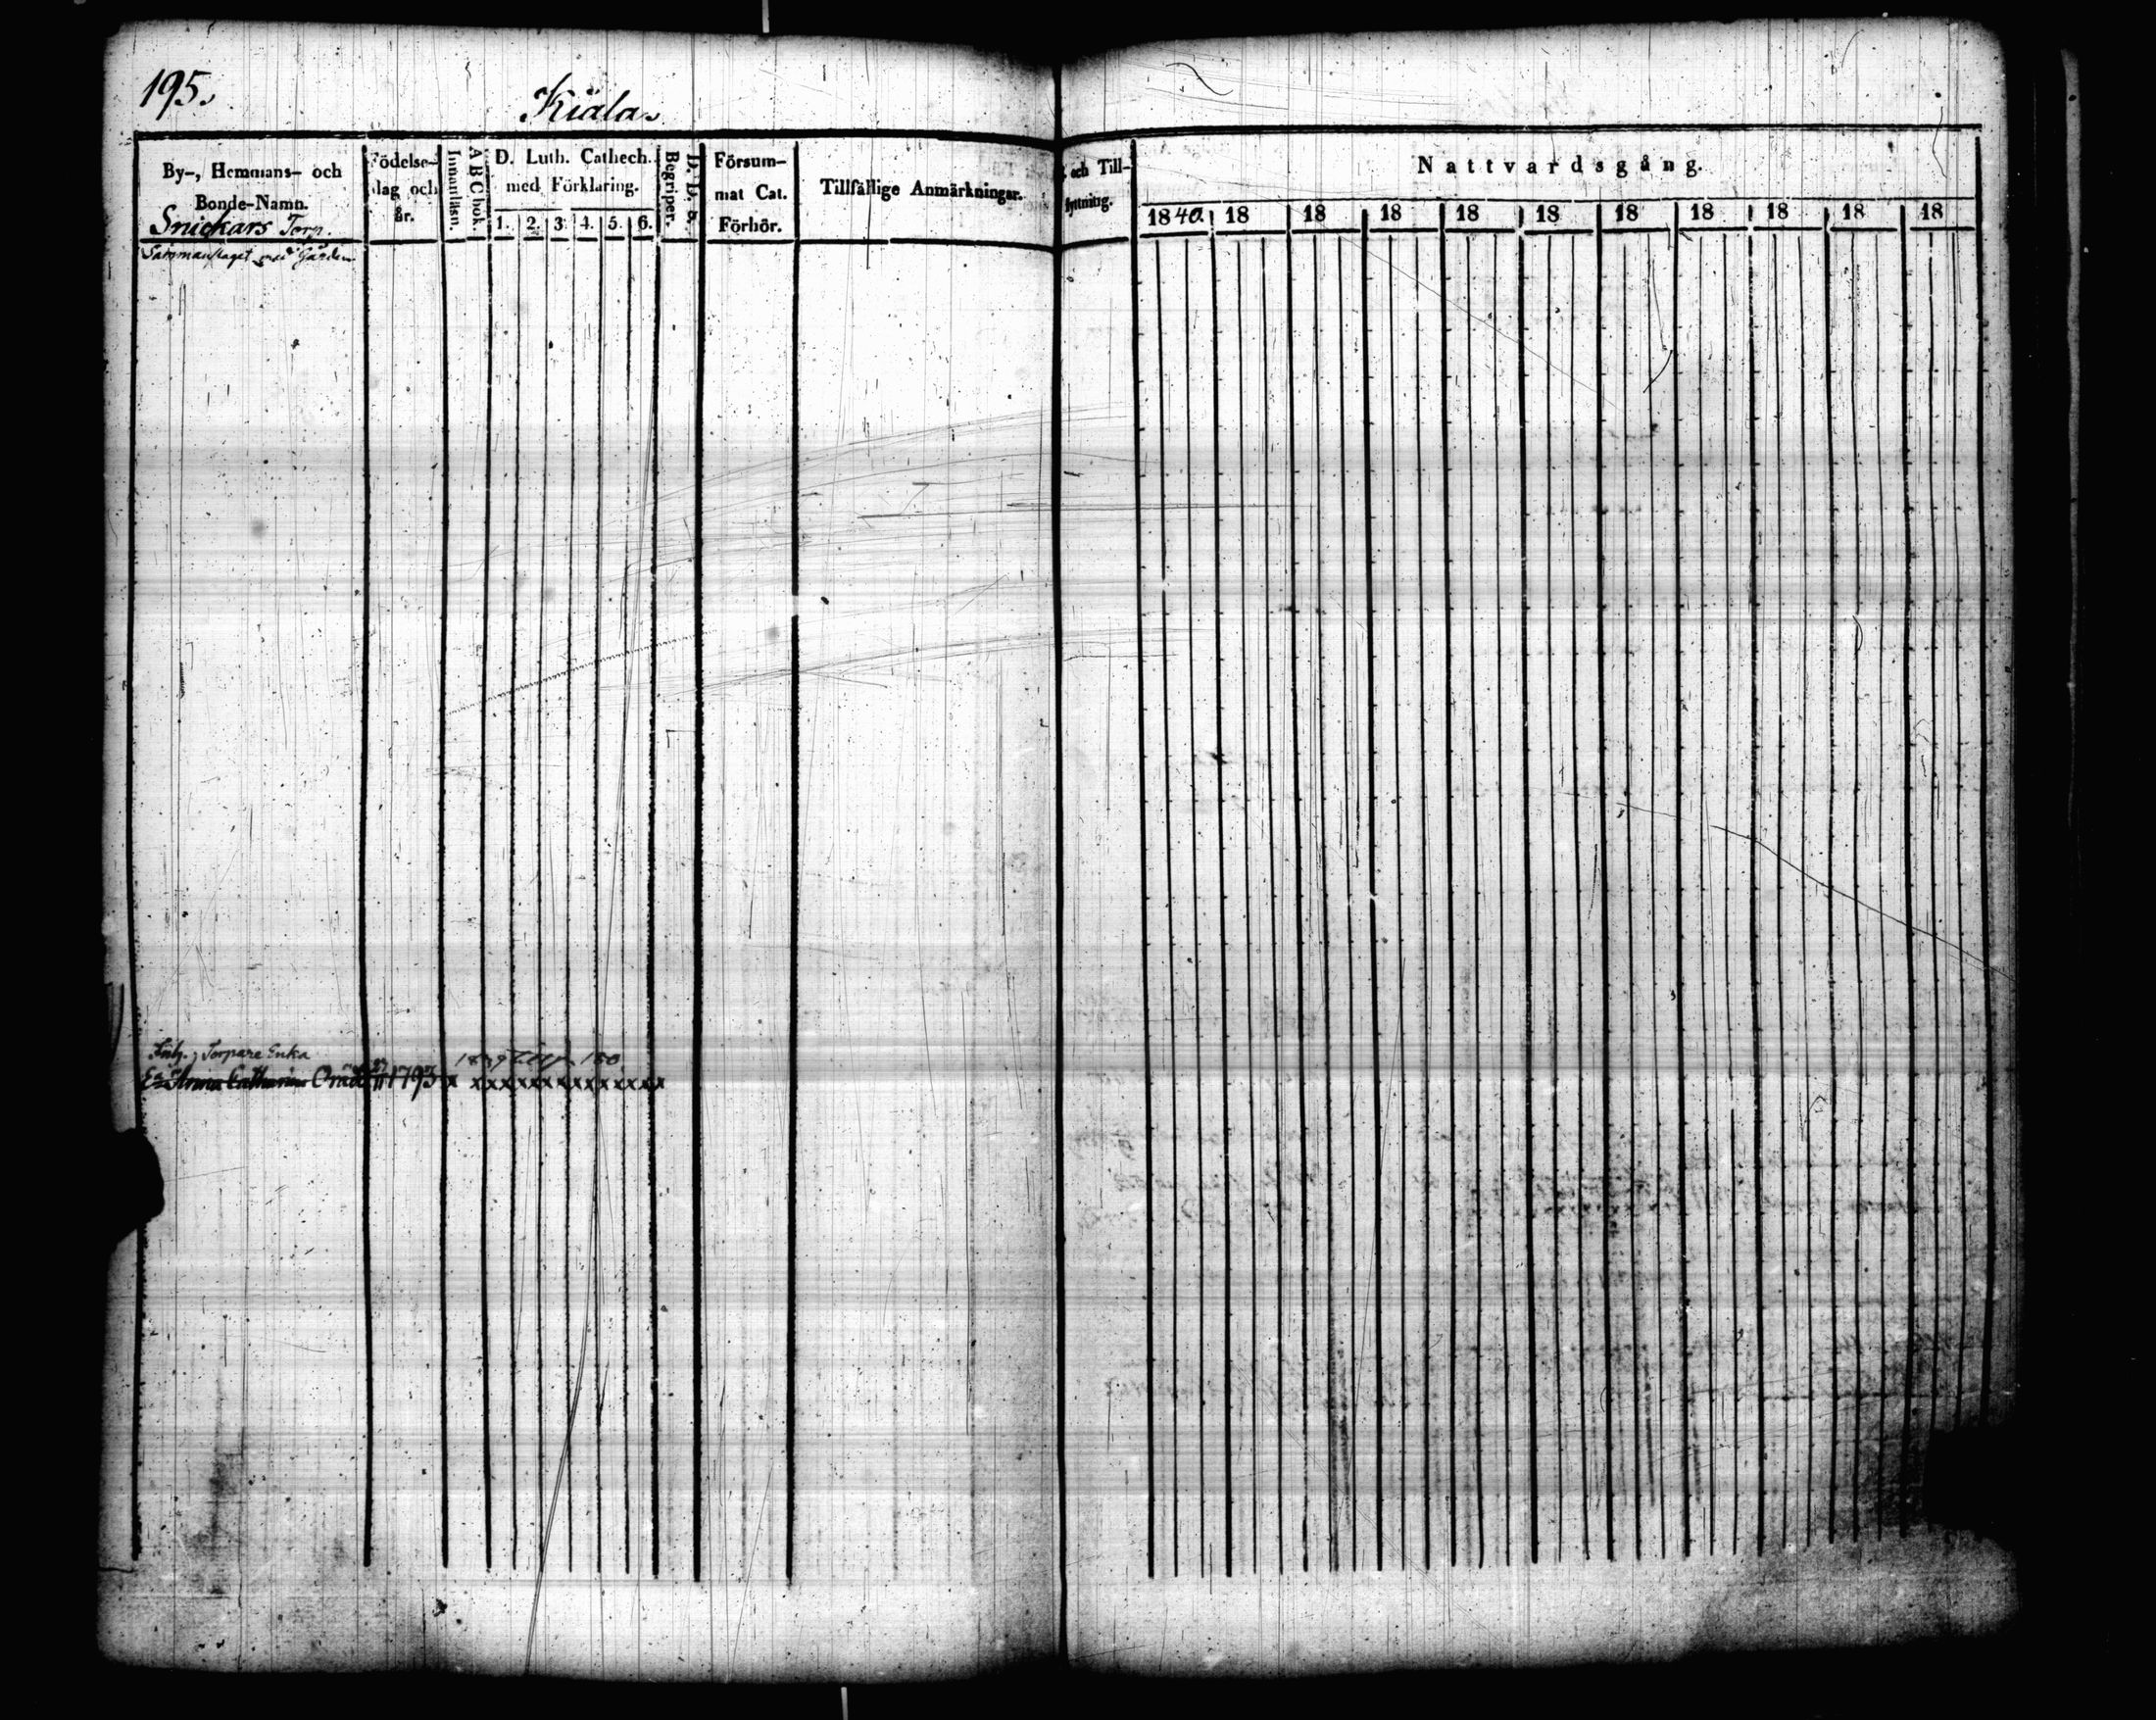 195.
Kiala.
By-, Hemmans- och
Bonde-Namn.
Snickars Torp.
Födelse-
dag och
år.
Innantläsn.
A B C bok.
D. Luth. Cathech.
med Förklaring.
1. 2. 3. 4. 5. 6.
Begriper.
Försum-
mat Cat.
Förhör.
Tillfällige Anmärkningar.
och Till-
flyttning.
Nattvardsgång.
1840. 18 18 18 18 18 18 18 18 18 18
Sammanslaget med Gården
Inh. Torpare Enka
Anna Catharina 1793 x xxxxxxxxxxxxx